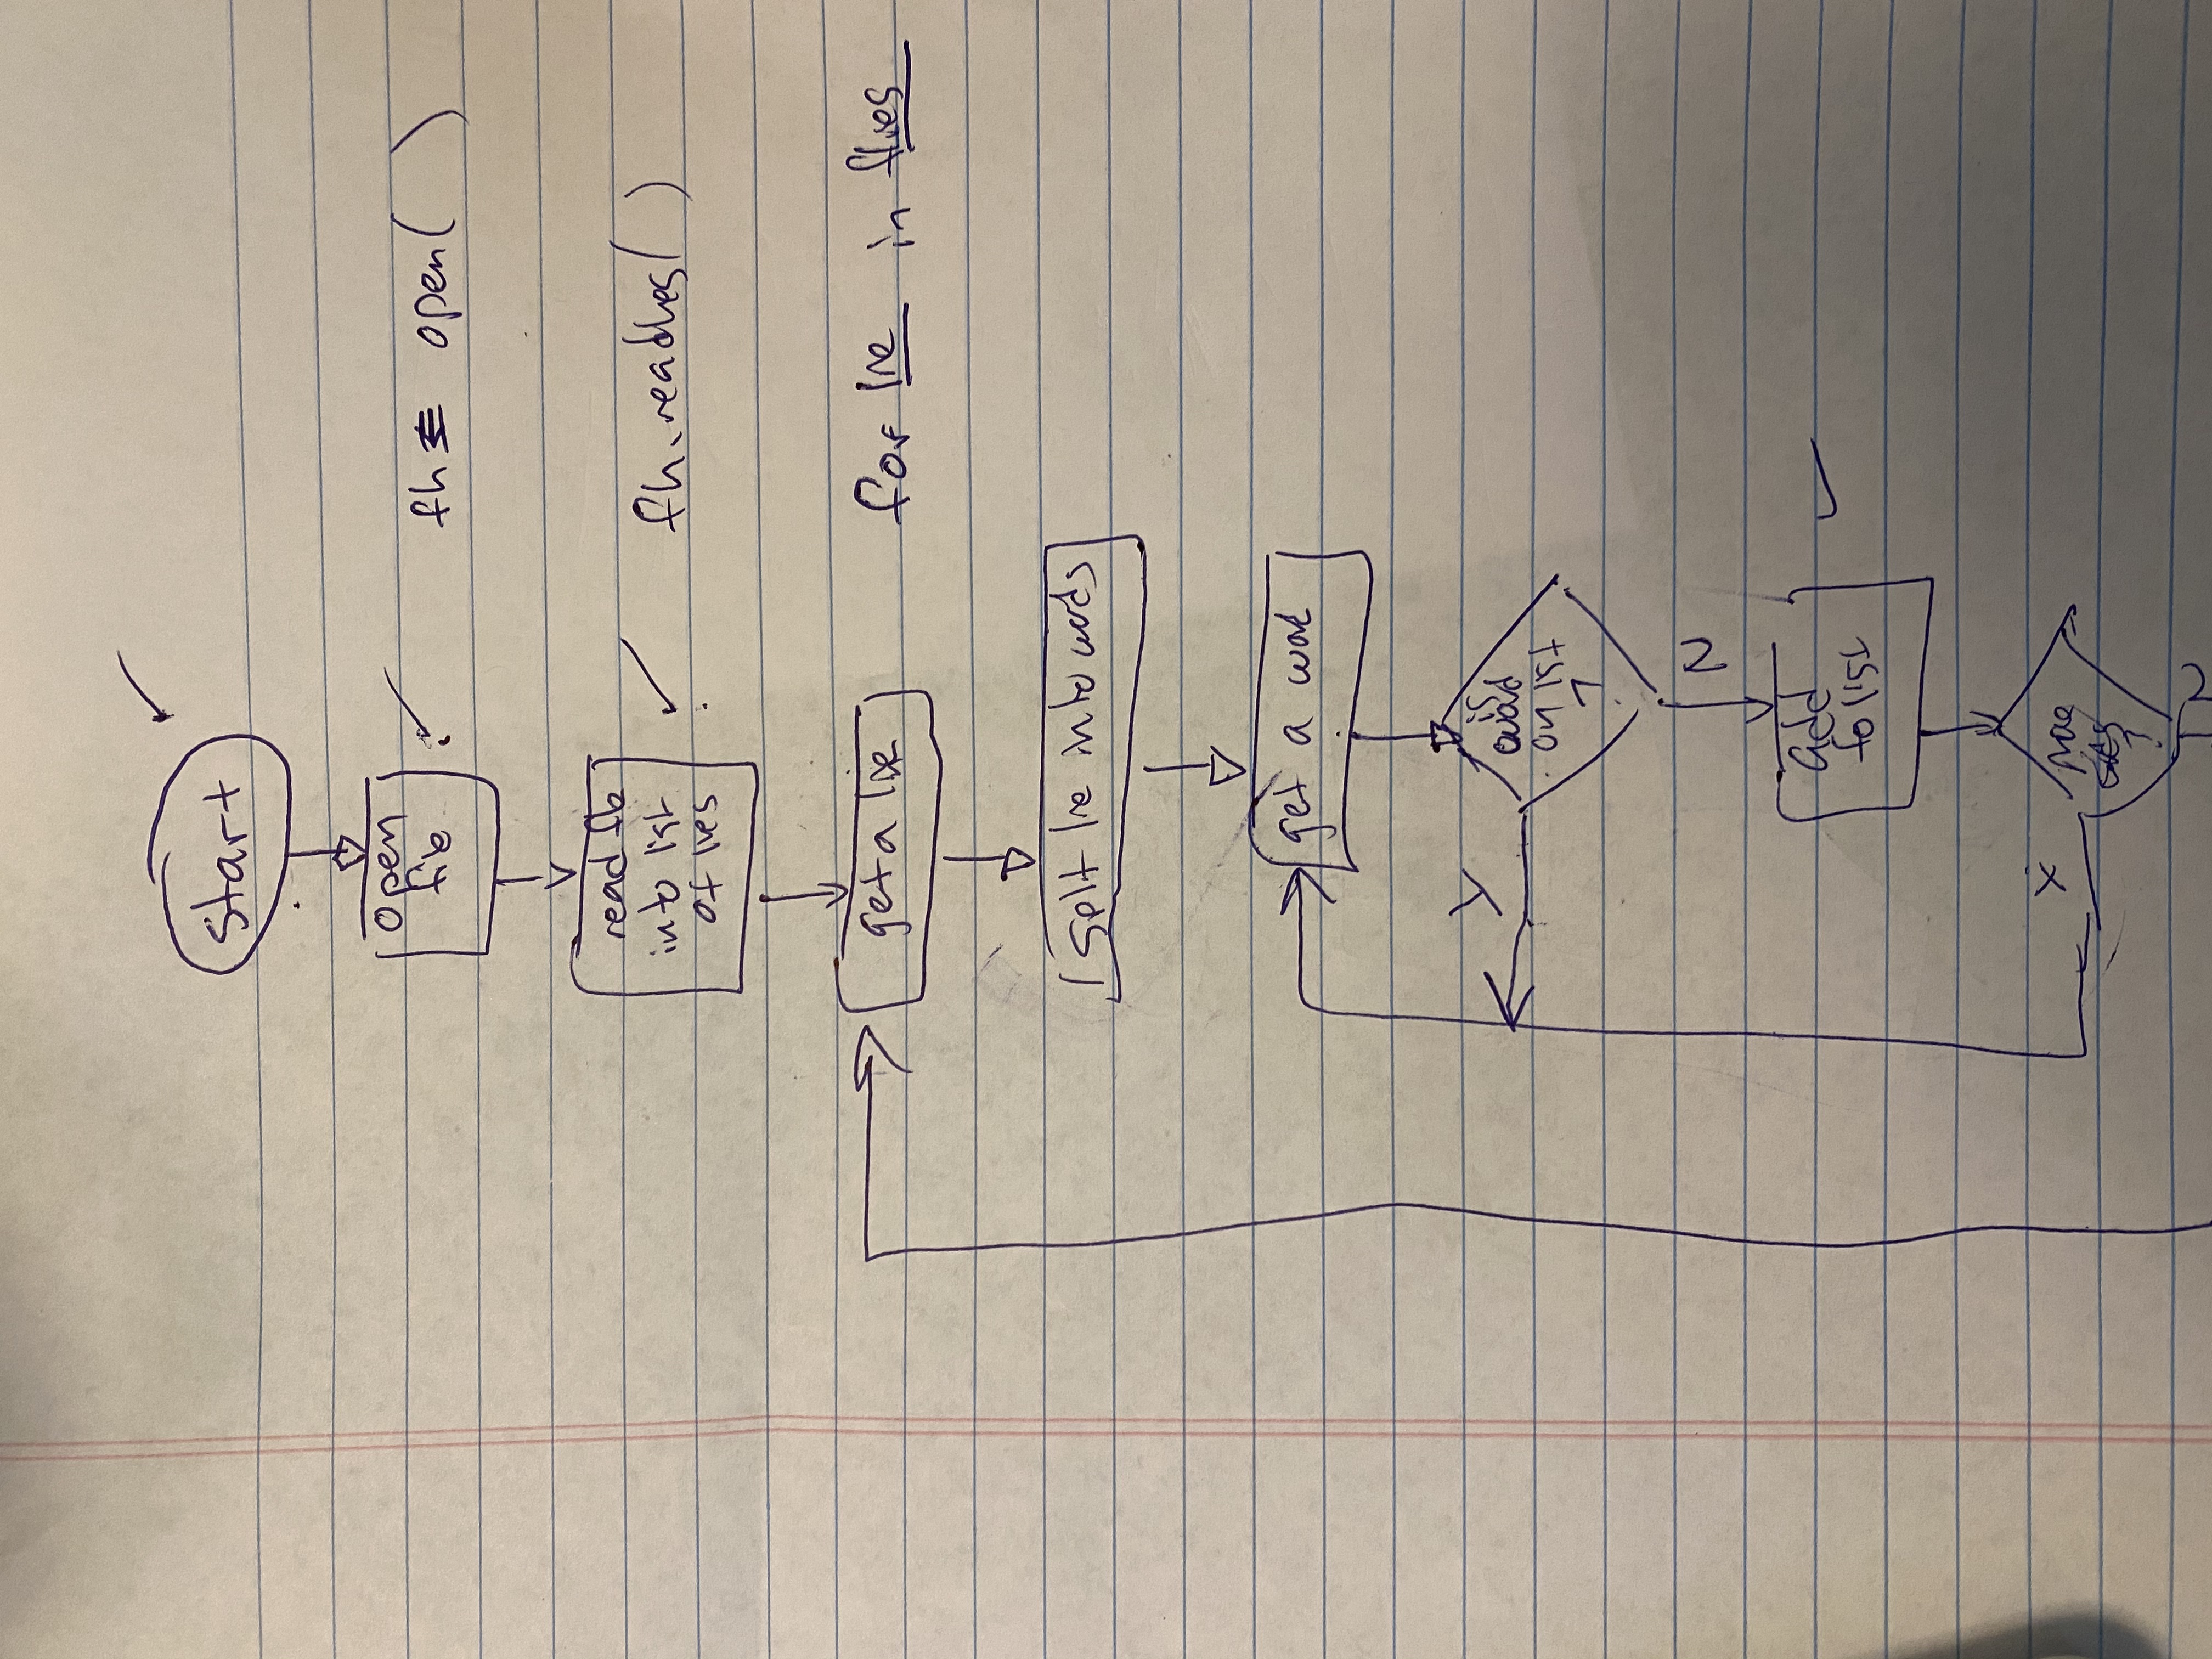 start
open
file
fh = open( )
read file
into list
of lines
fh.readlines( )
get a line
for line in flines
split line into words
get a word
is
word
on list
?
Y
N
add
to list
more
?
Y
N